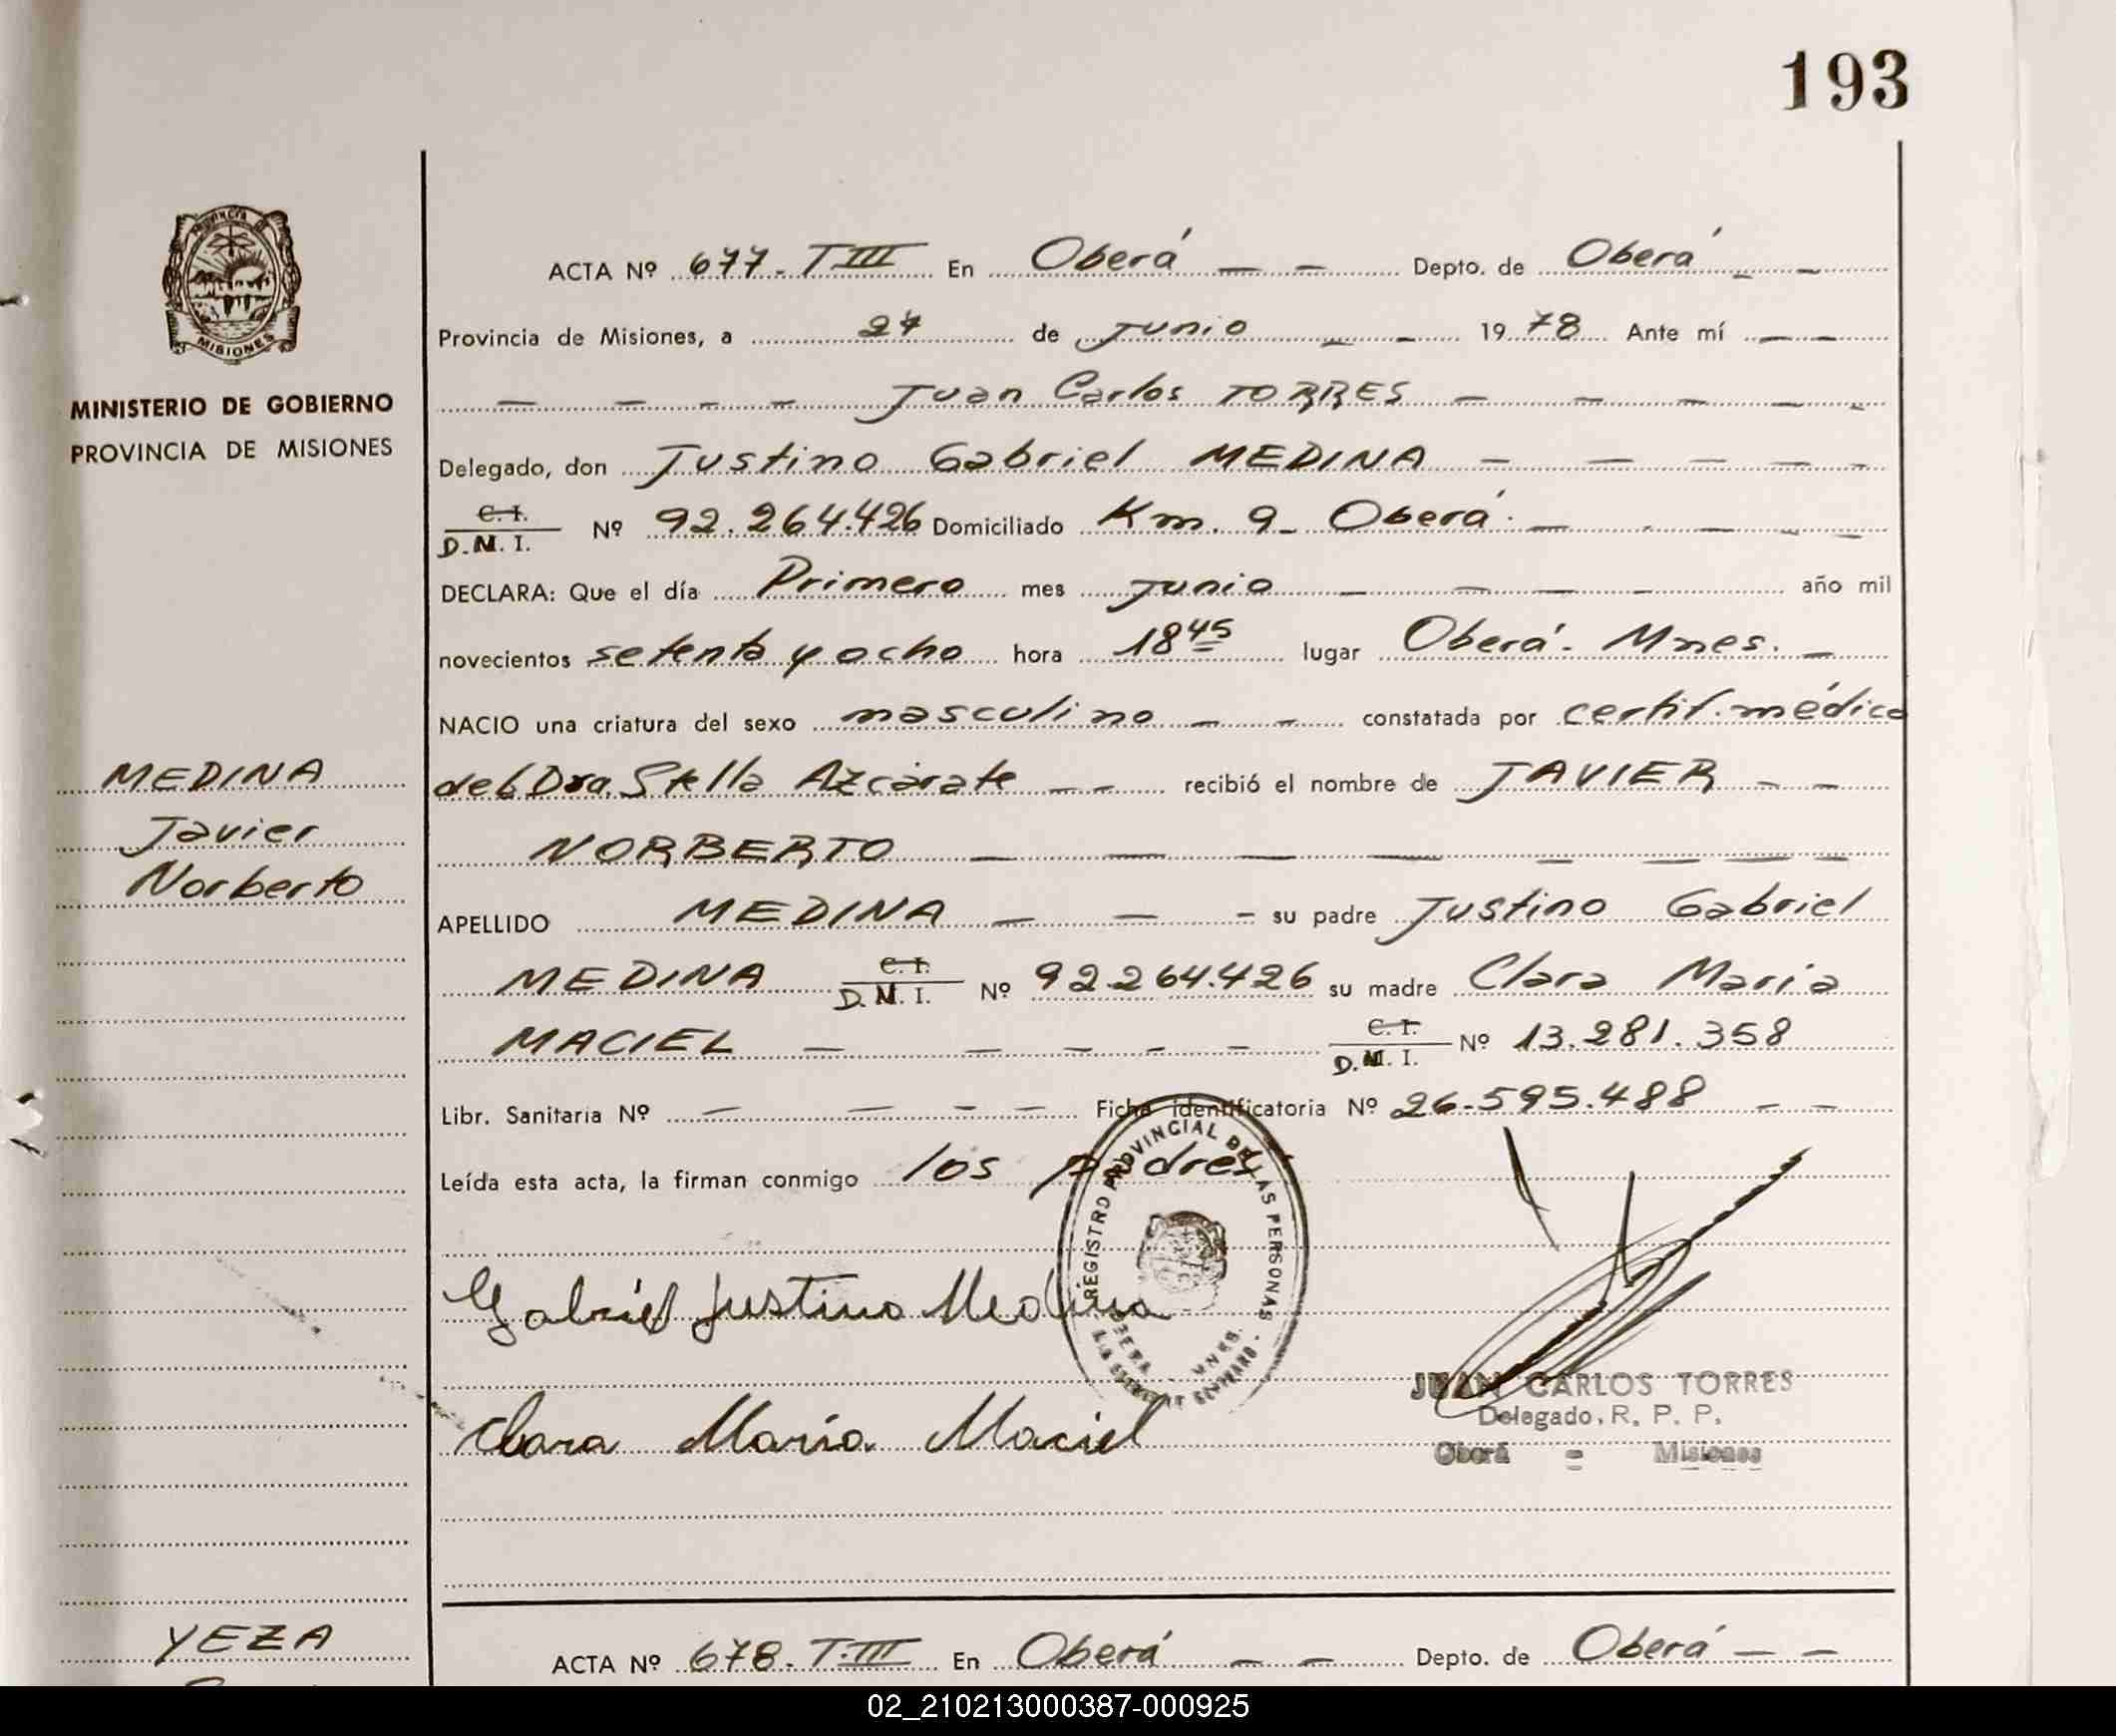 193
PROVINCIA DE
MISIONES
MINISTERIO DE GOBIERNO
PROVINCIA DE MISIONES
MEDINA
Javier
Norberto
ACTA Nº 677- T III En Oberá — — Depto. de Oberá - -
Provincia de Misiones, a 27 de Junio — — 1978 Ante mí — —
— — — — Juan Carlos TORRES — — — — -
Delegado, don Justino Gabriel MEDINA — — — — -
C. I.
D.M.I. Nº 92.264.426 Domiciliado Km. 9- Oberá. — - — - —
DECLARA: Que el día Primero mes Junio — — — — año mil
novecientos setenta y ocho hora 18 45 lugar Oberá- Mnes. —
NACIO una criatura del sexo masculino — — constatada por certif. médico
del Dra. Stella Azcárate — — recibió el nombre de JAVIER — —
NORBERTO — — — — — — —
APELLIDO MEDINA — — - su padre Justino Gabriel
MEDINA C. I. D.M.I. Nº 92.264.426 su madre Clara Maria
MACIEL — — — — — C. I. D.M.I. Nº 13.281.358
Libr. Sanitaria Nº — — — — Ficha identificatoria Nº 26.595.488 — —
Leída esta acta, la firman conmigo los padres
REGISTRO PROVINCIAL DE LAS PERSONAS
MNES.
Gabriel Justino Medina
Clara María Maciel
JUAN CARLOS TORRES
Delegado, R. P. P.
Oberá = Misiones
YEZA
ACTA Nº 678- T.III En Oberá — — Depto. de Oberá — —
02_210213000387-000925